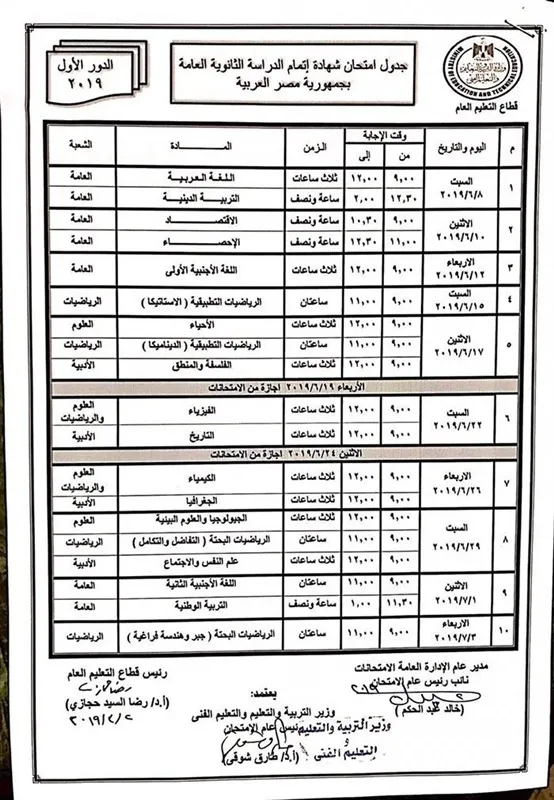 جدول امتحان شهادة إتمام الدراسة الثانوية العامة
بجمهورية مصر العربية
الدور الأول
٢٠١٩
قطاع التعليم العام
م اليوم والتاريخ وقت الإجابة الزمن المادة الشعبة
من إلى
١ السبت ٢٠١٩/٦/٨ ٩,٠٠ ١٢,٠٠ ثلاث ساعات اللغة العربية العامة
١٢,٣٠ ٢,٠٠ ساعة ونصف التربية الدينية العامة
٢ الاثنين ٢٠١٩/٦/١٠ ٩,٠٠ ١٠,٣٠ ساعة ونصف الاقتصاد العامة
١١,٠٠ ١٢,٣٠ ساعة ونصف الإحصاء العامة
٣ الاربعاء ٢٠١٩/٦/١٢ ٩,٠٠ ١٢,٠٠ ثلاث ساعات اللغة الأجنبية الأولى العامة
٤ السبت ٢٠١٩/٦/١٥ ٩,٠٠ ١١,٠٠ ساعتان الرياضيات التطبيقية ( الاستاتيكا ) الرياضيات
٥ الاثنين ٢٠١٩/٦/١٧ ٩,٠٠ ١٢,٠٠ ثلاث ساعات الأحياء العلوم
٩,٠٠ ١١,٠٠ ساعتان الرياضيات التطبيقية ( الديناميكا ) الرياضيات
٩,٠٠ ١٢,٠٠ ثلاث ساعات الفلسفة والمنطق الأدبية
الأربعاء ٢٠١٩/٦/١٩ اجازة من الامتحانات
٦ السبت ٢٠١٩/٦/٢٢ ٩,٠٠ ١٢,٠٠ ثلاث ساعات الفيزياء العلوم والرياضيات
٩,٠٠ ١٢,٠٠ ثلاث ساعات التاريخ الأدبية
الاثنين ٢٠١٩/٦/٢٤ اجازة من الامتحانات
٧ الاربعاء ٢٠١٩/٦/٢٦ ٩,٠٠ ١٢,٠٠ ثلاث ساعات الكيمياء العلوم والرياضيات
٩,٠٠ ١٢,٠٠ ثلاث ساعات الجغرافيا الأدبية
٨ السبت ٢٠١٩/٦/٢٩ ٩,٠٠ ١٢,٠٠ ثلاث ساعات الجيولوجيا والعلوم البيئية العلوم
٩,٠٠ ١١,٠٠ ساعتان الرياضيات البحتة ( التفاضل والتكامل ) الرياضيات
٩,٠٠ ١٢,٠٠ ثلاث ساعات علم النفس والاجتماع الأدبية
٩ الاثنين ٢٠١٩/٧/١ ٩,٠٠ ١١,٠٠ ساعتان اللغة الأجنبية الثانية العامة
١١,٣٠ ١,٠٠ ساعة ونصف التربية الوطنية العامة
١٠ الاربعاء ٢٠١٩/٧/٣ ٩,٠٠ ١١,٠٠ ساعتان الرياضيات البحتة ( جبر وهندسة فراغية ) الرياضيات
مدير عام الإدارة العامة الامتحانات
نائب رئيس عام الامتحان
(خالد عبد الحكم)
رئيس قطاع التعليم العام
(أ.د/ رضا السيد حجازي)
٢٠١٩/٢/٢
يعتمد:
وزير التربية والتعليم والتعليم الفنى
رئيس عام الامتحان
وزير التربية والتعليم
و
التعليم الفنى
(أ.د/ طارق شوقى)